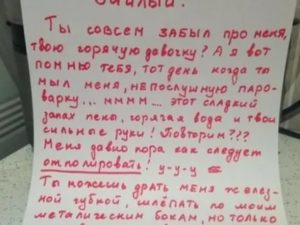 Ты совсем забыл про меня,
твою горячую давочку? А я вот
помню тебя, тот день когда ты
мыл меня, непослушную паро-
варку... мммм.... этот сладкий
запах пемо, горячая вода и твои
сильные руки! Повторим???
Меня давно пора как следует
отполировать! у-у-у
Ты можешь драть меня желез-
ной губкой, шлёпать по моим
металическим бокам, но только